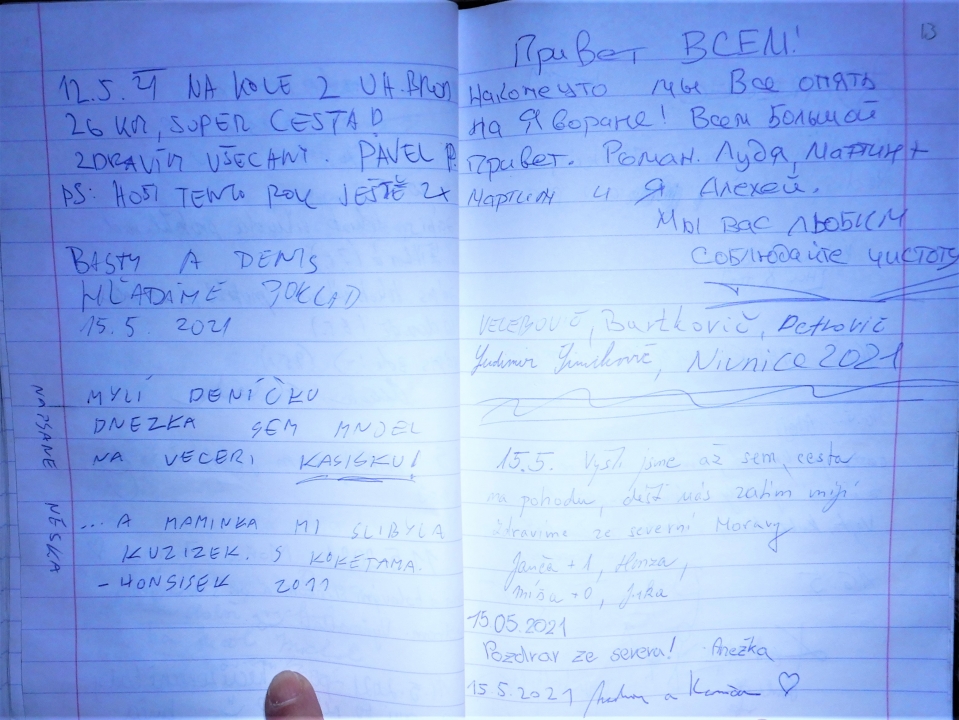 12.5. 21 NA KOLE Z UH. BROD
26 KM, SUPER CESTA!
ZDRAVÍM VŠECHNY. PAVEL P.
PS: HOSI TENTO ROK JEŠTĚ 2x
BASTY A DENIS
HLADÁME POKLAD
15.5. 2021
MYLÍ DENÍČKU
DNEZKA SEM MNDEL
NA VECERI KASISKU!
... A MAMINKA MI SLIBYLA
KUZIZEK. S KOKETAMA.
- HONSISEK 2011
NAPSANE NESKA
13
Привет ВСЕМ!
Наконецто мы Все опять
на Яворане! Всем Большой
Привет. Роман. Лудя, Мартин +
Мартин и Я Алехей.
Мы вас любим
Соблюдайте чистоту
VELEBOVÉ, Bartkovič, Petrovič
Nivnice 2021
15.5. Vyšli jsme až sem, cesta
na pohodu, déšť nás zatím míjí
Zdravíme ze severní Moravy
Janča +1, Honza,
Míša +0, Jirka
15.05.2021
Pozdrav ze severa! Anežka
15.5.2021 a